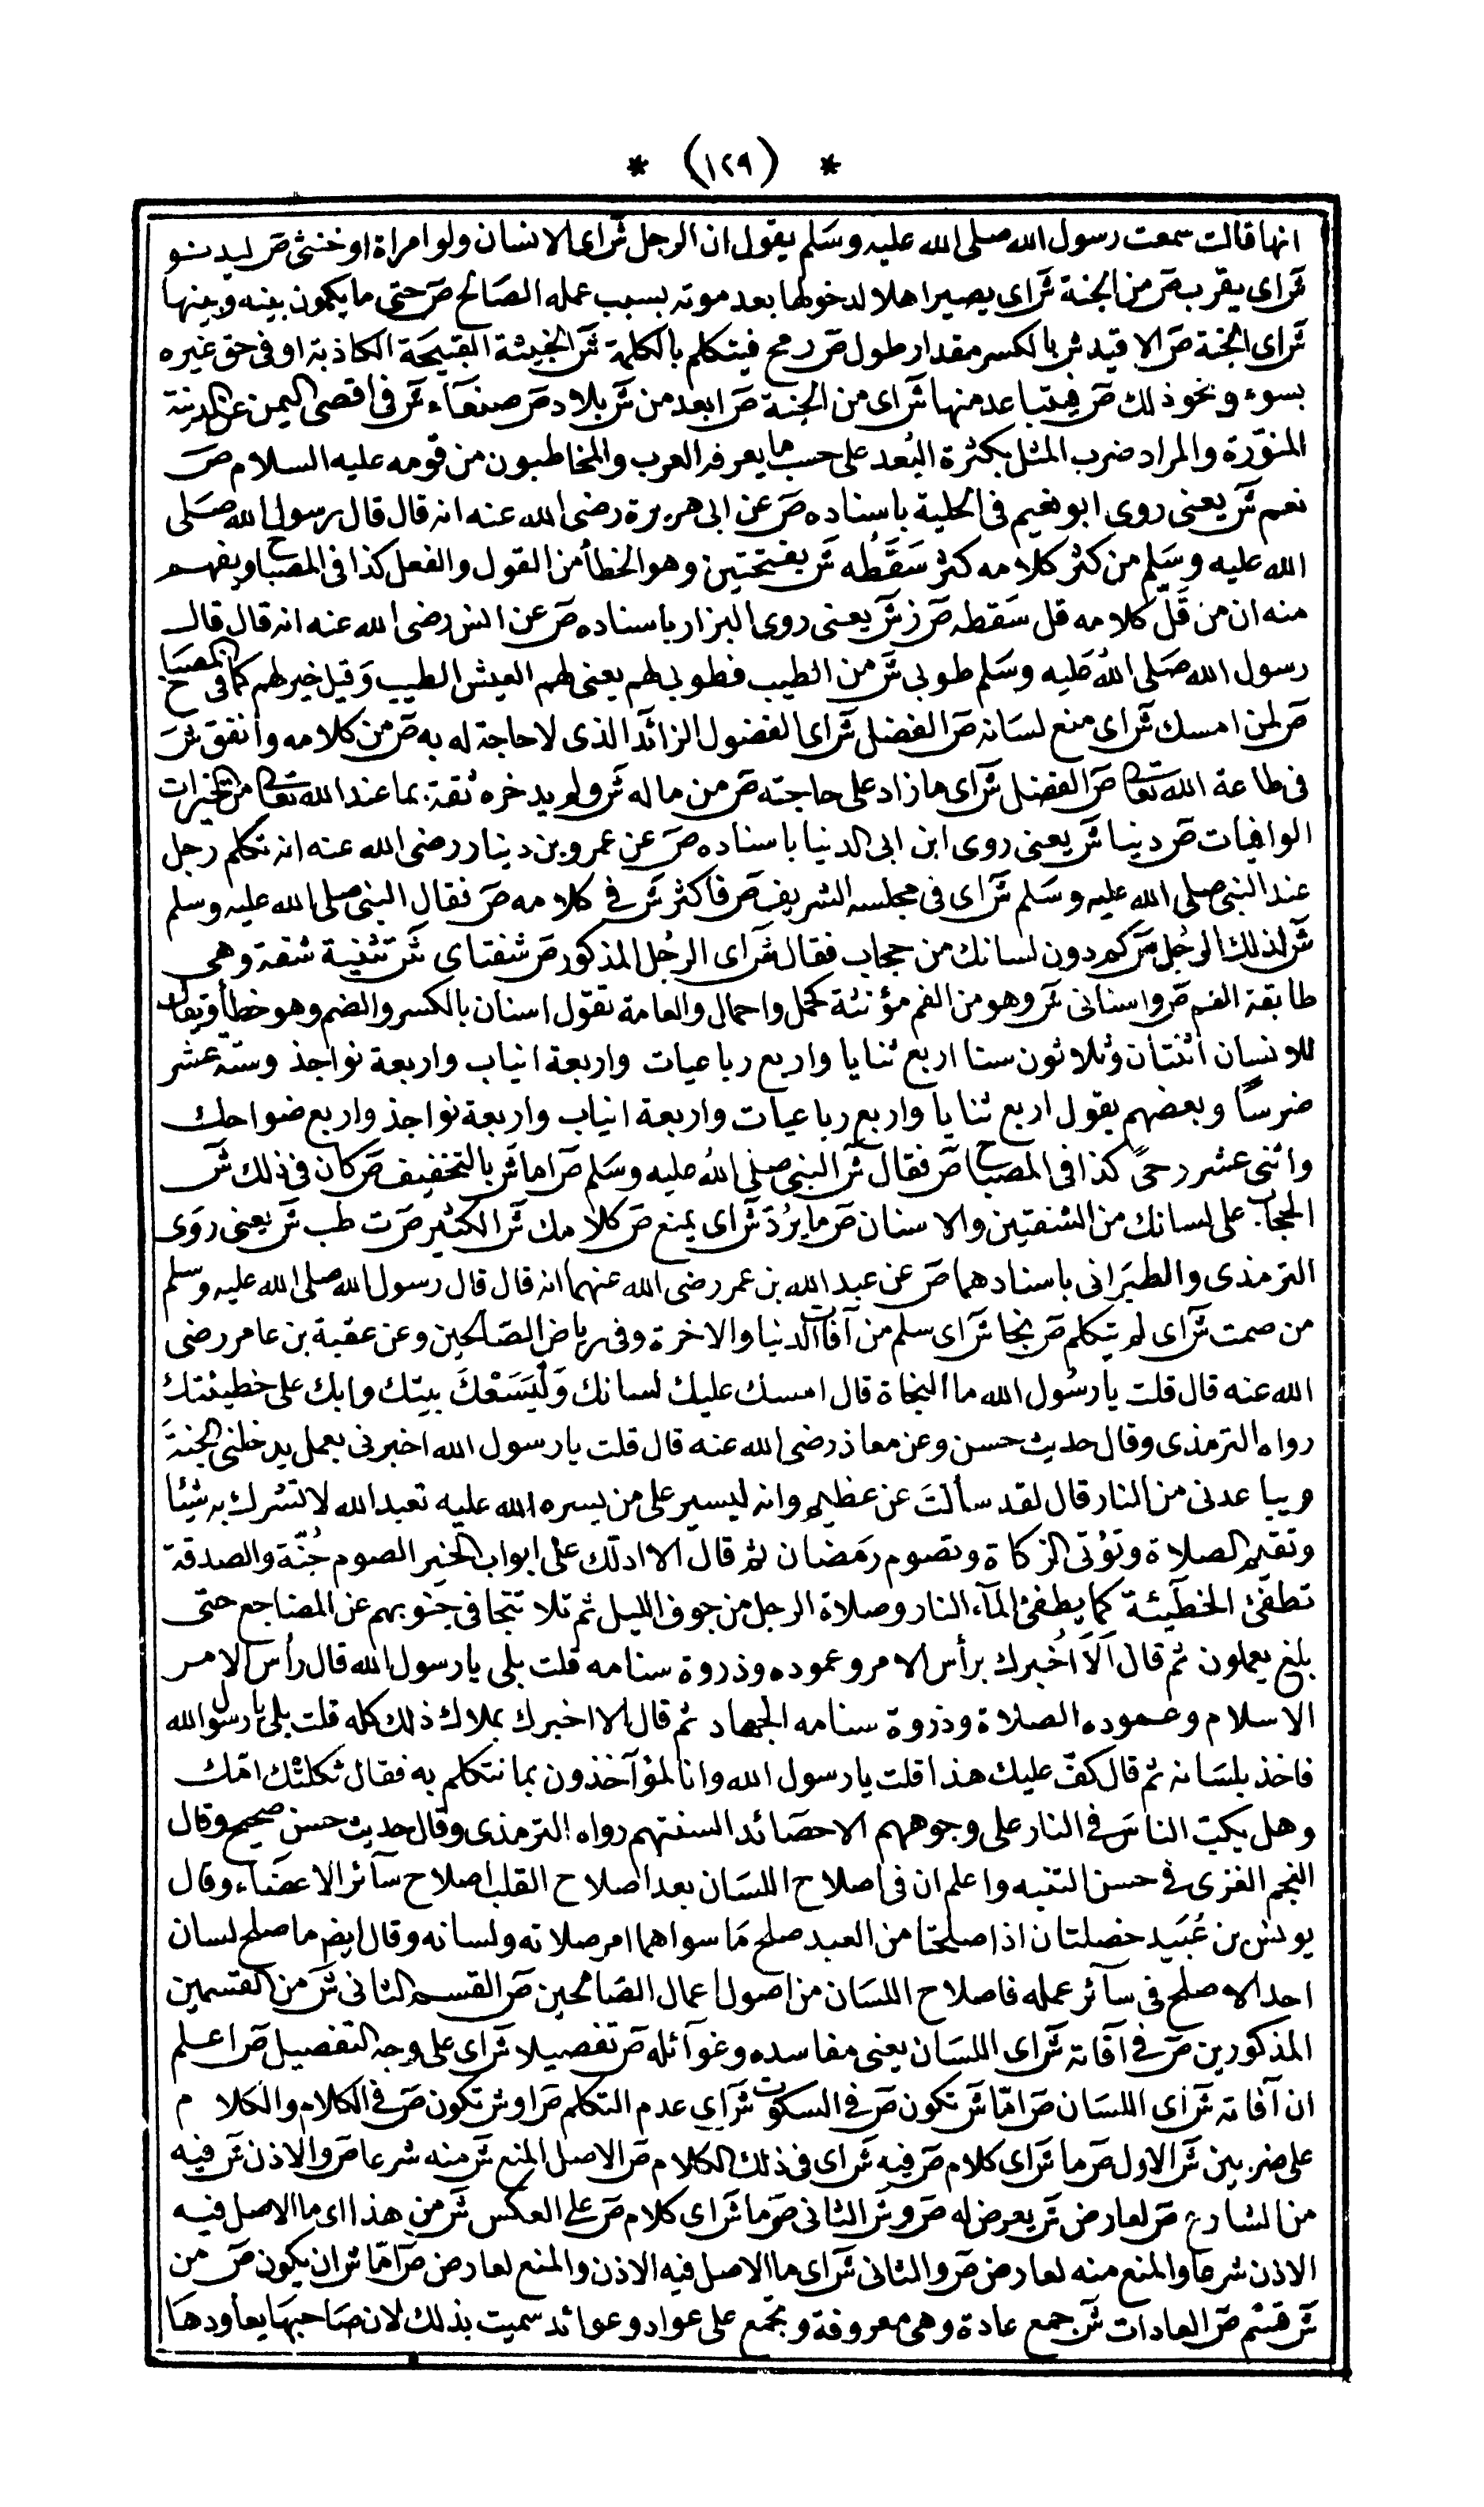 * (١٢٩) *
انها قالت سمعت رسول الله صلى الله عليه وسلم يقول ان الرجل ش اى الانسان ولو امراة او خنثى ص ليدنو
ش اى يقرب ص من الجنة ش اى يصير اهلا لدخولها بعد موته بسبب عمله الصالح ص حتى ما يكون بينه وبينها
ش اى الجنة ص الا قيد ش بالكسر مقدار طول ص رمح فيتكلم بالكلمة ش الخبيثة القبيحة الكاذبة او فى حق غيره
بسوء ونحو ذلك ص فيتباعد منها ش اى من الجنة ص ابعد من ش بلاد ص صنعاء ش فى اقصى اليمن عن المدينة
المنورة والمراد ضرب المثل بكثرة البُعد على حسب ما يعرفه العرب والمخاطبون من قومه عليه السلام ص
نعم ش يعنى روى ابو نعيم فى الحلية باسناده ص عن ابى هريرة رضى الله عنه انه قال قال رسول الله صلى
الله عليه وسلم من كثر كلامه كثر سَقَطُه ش بفتحتين وهو الخطأ من القول والفعل كذا فى المصباح ويفهم
منه ان من قَلّ كلامه قل سقطه ص ز ش يعنى روى البزار باسناده ص عن انس رضى الله عنه انه قال قال
رسول الله صلى الله عليه وسلم طوبى ش من الطيب فطوبى لهم يعنى لهم العيش الطيب وقيل خير لهم كما فى المصباح
ص لمن امسك ش اى منع لسانه ص الفضل ش اى الفضول الزائد الذى لا حاجة له به ص من كلامه وانفق ش
فى طاعة الله تعالى ص الفضل ش اى ما زاد على حاجته ص من ماله ش ولم يدخره ثقة بما عند الله تعالى من الخيرات
الوافيات ص دنيا ش يعنى روى ابن ابى الدنيا باسناده ص عن عمرو بن دينار رضى الله عنه انه تكلم رجل
عند النبى صلى الله عليه وسلم ش اى فى مجلسه الشريف ص فاكثر ش فى كلامه ص فقال النبى صلى الله عليه وسلم
ش لذلك الرجل ص كم دون لسانك من حجاب فقال ش اى الرجل المذكور ص شفتاى ش تثنية شفة وهى
طابقة الفم ص واسنانى ش وهو من الفم مؤنثة كحمل واحمال والعامة تقول اسنان بالكسر والضم وهو خطأ ويقال
للانسان اثنتان وثلاثون سنا اربع ثنايا واربع رباعيات واربعة انياب واربعة نواجذ وستة عشر
ضرسًا وبعضهم يقول اربع ثنايا واربع رباعيات واربعة انياب واربعة نواجذ واربع ضواحك
واثنى عشر رحىً كذا فى المصباح ص فقال ش النبى صلى الله عليه وسلم ص اما ش بالتخفيف ص كان فى ذلك ش
الحجاب على لسانك من الشفتين والاسنان ص ما يرُدّ ش اى يمنع ص كلامك ش الكثير ص ت طب ش يعنى روى
الترمذى والطبرانى باسنادهما ص عن عبد الله بن عمر رضى الله عنهما انه قال قال رسول الله صلى الله عليه وسلم
من صمت ش اى لم يتكلم ص نجا ش اى سلم من آفات الدنيا والاخرة وفى رياض الصالحين وعن عقبة بن عامر رضى
الله عنه قال قلت يا رسول الله ما النجاة قال امسك عليك لسانك وَلْيَسَعْكَ بيتك وابك على خطيئتك
رواه الترمذى وقال حديث حسن وعن معاذ رضى الله عنه قال قلت يا رسول الله اخبرنى بعمل يدخلنى الجنة
ويباعدنى من النار قال لقد سألتَ عن عظيم وانه ليسير على من يسره الله عليه تعبد الله لا تشرك به شيئا
وتقيم الصلاة وتؤتى الزكاة وتصوم رمضان ثم قال الا ادلك على ابواب الخير الصوم جُنّة والصدقة
تطفئ الخطيئة كما يطفئ المآء النار وصلاة الرجل من جوف الليل ثم تلا تتجافى جنوبهم عن المضاجع حتى
بلغ يعملون ثم قال اَلاَ اُخبرك برأس الامر وعموده وذروة سنامه قلت بلى يا رسول الله قال رأس الامر
الاسلام وعموده الصلاة وذروة سنامه الجهاد ثم قال الا اخبرك بملاك ذلك كله قلت بلى يا رسول الله
فاخذ بلسانه ثم قال كفّ عليك هذا قلت يا رسول الله وانا لمؤآخذون بما نتكلم به فقال ثكلتْك امّك
وهل يكبّ الناسَ فى النار على وجوههم الا حصائد السنتهم رواه الترمذى وقال حديث حسن صحيح وقال
النجم الغزى فى حسن التنبه واعلم ان فى اصلاح اللسان بعد اصلاح القلب اصلاح سآئر الاعضاء وقال
يونس بن عُبَيد خصلتان اذا صلحتا من العبد صلح ما سواهما امر صلاته ولسانه وقال ايضم ما صلح لسان
احد الا صلح فى سآئر عمله فاصلاح اللسان من اصول اعمال الصالحين ص القسم الثانى ش من القسمين
المذكورين ص فى آفاته ش اى اللسان يعنى مفاسده وغوآئله ص تفصيلا ش اى على وجه التفصيل ص اعلم
ان آفاته ش اى اللسان ص امّا ش تكون ص فى السكوت ش اى عدم التكلم ص او ش تكون ص فى الكلام والكلام
على ضربين ش الاول ص ما ش اى كلام ص فيه ش اى فى ذلك الكلام ص الاصل المنع ش منه شرعا ص والاذن ش فيه
من الشارع ص لعارض ش يعرض له ص و ش الثانى ص ما ش اى كلام ص على العكس ش من هذا اى ما الاصل فيه
الاذن شرعا والمنع منه لعارض ص والثانى ش اى ما الاصل فيه الاذن والمنع لعارض ص امّا ش ان يكون ص من
ش قسم ص العادات ش جمع عادة وهى معروفة وتجمع على عواد وعوائد سميت بذلك لان صاحبها يعاودها